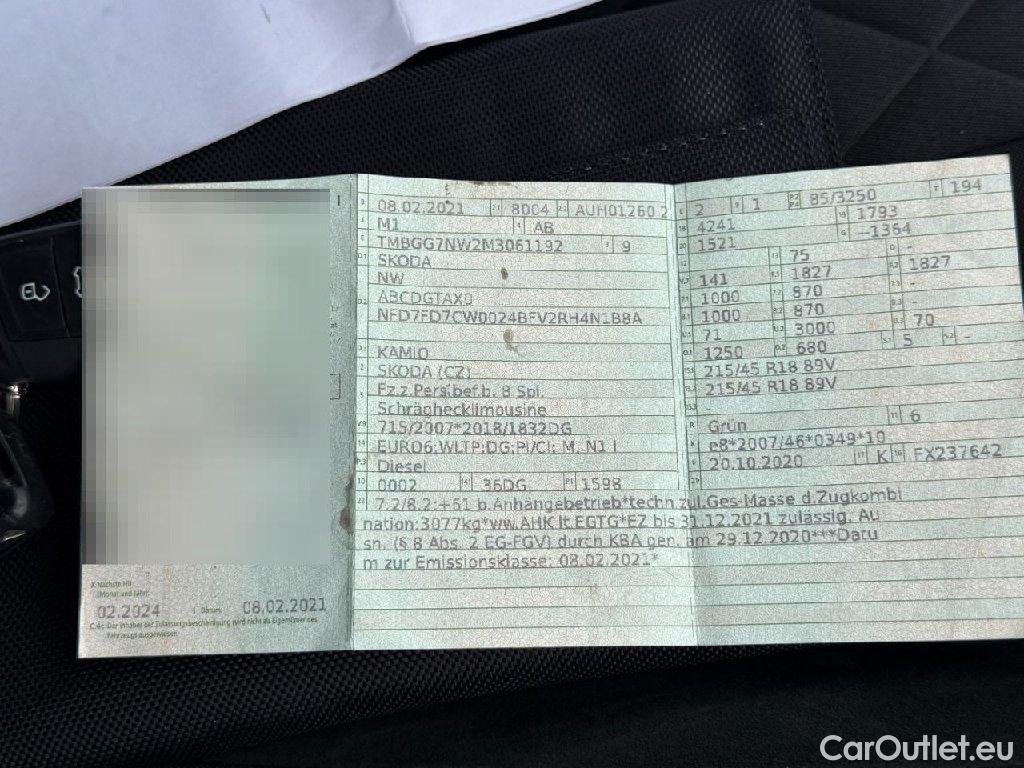 08.02.2021 8004 AUH01260 2
M1 AB
TMBGG7NW2M3061192 9
SKODA
NW
ABCDGTAX0
NFD7FD7CW0024BFV2RH4N1B8A
KAMIQ
SKODA (CZ)
Fz.z.Pers.bef.b. 8 Spl.
Schräghecklimousine
715/2007*2018/1832DG
EURO6;WLTP;DG;PI/CI; M, N1 I
Diesel
0002 36DG 1598
2 1 85/3250 194
4241 1793
1521 --1364
75 -
141 1827 1827
1000 870 -
1000 870 -
71 3000 70
1250 680 5 -
215/45 R18 89V
215/45 R18 89V
-
Grün 6
e8*2007/46*0349*10
20.10.2020 K FX237642
7.2/8.2:+51 b.Anhängebetrieb*techn.zul.Ges-Masse d.Zugkombi
nation:3077kg*ww.AHK lt.EGTG*EZ bis 31.12.2021 zulässig. Au
sn. (§ 8 Abs. 2 EG-FGV) durch KBA gen. am 29.12.2020***Datu
m zur Emissionsklasse: 08.02.2021*
Nächste HU
(Monat und Jahr)
02.2024 Datum 08.02.2021
C.4c Der Inhaber der Zulassungsbescheinigung wird nicht als Eigentümer des
Fahrzeugs ausgewiesen.
CarOutlet.eu